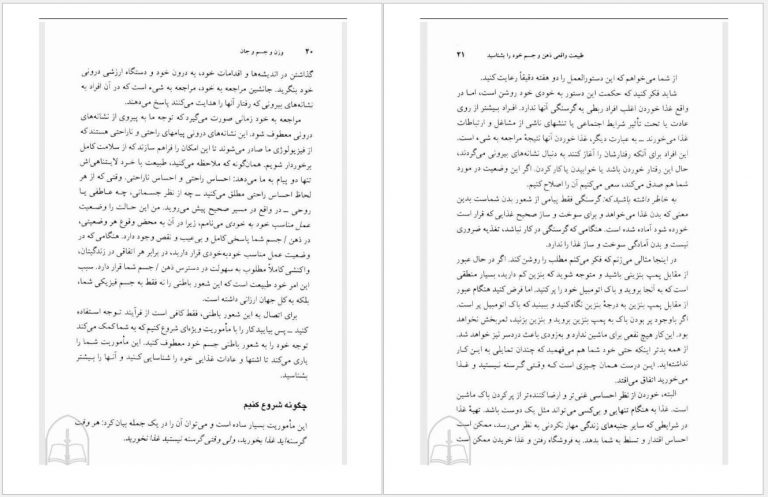 ۴۰ وزن و جسم و جان
گذاشتن در اندیشه‌ها و اقدامات خود، به درون خود و دستگاه ارزشی درونی
خود بنگرید. جانشین مراجعه به خود، مراجعه به شیء است که در آن افراد به
نشانه‌های بیرونی که رفتار آنها را هدایت می‌کنند پاسخ می‌دهند.
مراجعه به خود زمانی صورت می‌گیرد که توجه ما به پیروی از نشانه‌های
درونی معطوف شود. این نشانه‌های درونی پیامهای راحتی و ناراحتی هستند که
از فیزیولوژی ما صادر می‌شوند تا این امکان را فراهم سازند که از سلامت کامل
برخوردار شویم. همان‌گونه که ملاحظه می‌کنید، طبیعت با خرد لایتناهی‌اش
تنها دو پیام به ما می‌دهد: احساس راحتی و احساس ناراحتی. وقتی که از هر
لحاظ احساس راحتی مطلق می‌کنید ــ چه از نظر جسمانی، چه عاطفی یا
روحی ــ در واقع در مسیر صحیح پیش می‌روید. من این حالت را وضعیت
عمل مناسب خود به خودی می‌نامم، زیرا در آن به محض وقوع هر وضعیتی،
در ذهن / جسم شما پاسخی کامل و بی‌عیب و نقص وجود دارد. هنگامی که در
وضعیت عمل مناسب خودبه‌خودی قرار دارید، در برابر هر اتفاقی در زندگیتان،
واکنشی کاملاً مطلوب به سهولت در دسترس ذهن / جسم شما قرار دارد. سبب
این امر خود طبیعت است که این شعور باطنی را نه فقط به جسم فیزیکی شما،
بلکه به کل جهان ارزانی داشته است.
برای اتصال به این شعور باطنی، فقط کافی است از فرآیند توجه استفاده
کنید ــ پس بیایید کار را با مأموریت ویژه‌ای شروع کنیم که به شما کمک می‌کند
توجه خود را به شعور باطنی جسم خود معطوف کنید. این مأموریت شما را
یاری می‌کند تا اشتها و عادات غذایی خود را شناسایی کنید و آنها را بیشتر
بشناسید.
چگونه شروع کنیم
این مأموریت بسیار ساده است و می‌توان آن را در یک جمله بیان کرد: هر وقت
گرسنه‌اید غذا بخورید، ولی وقتی گرسنه نیستید غذا نخورید.
طبیعت واقعی ذهن و جسم خود را بشناسید ۴۱
از شما می‌خواهم که این دستورالعمل را دو هفته دقیقاً رعایت کنید.
شاید فکر کنید که حکمت این دستور به خودی خود روشن است، اما در
واقع غذا خوردن اغلب افراد ربطی به گرسنگی آنها ندارد. افراد بیشتر از روی
عادت یا تحت تأثیر شرایط اجتماعی یا تنشهای ناشی از مشاغل و ارتباطات
غذا می‌خورند ــ به عبارت دیگر، غذا خوردن آنها نتیجهٔ مراجعه به شیء است.
این افراد برای آنکه رفتارشان را آغاز کنند به دنبال نشانه‌های بیرونی می‌گردند،
حال این رفتار خوردن باشد یا خوابیدن یا کار کردن. اگر این وضعیت در مورد
شما هم صدق می‌کند، سعی می‌کنیم آن را اصلاح کنیم.
به خاطر داشته باشید که: گرسنگی فقط پیامی از شعور بدن شماست بدین
معنی که بدن غذا می‌خواهد و برای سوخت و ساز صحیح غذایی که قرار است
خورده شود آماده شده است. هنگامی که گرسنگی در کار نباشد، تغذیه ضروری
نیست و بدن آمادگی سوخت و ساز غذا را ندارد.
در اینجا مثالی می‌زنم که فکر می‌کنم مطلب را روشن کند. اگر در حال عبور
از مقابل پمپ بنزینی باشید و متوجه شوید که بنزین کم دارید، بسیار منطقی
است که به آنجا بروید و باک اتومبیل خود را پر کنید. اما فرض کنید هنگام عبور
از مقابل پمپ بنزین به درجهٔ بنزین نگاه کنید و ببینید که باک اتومبیل پر است.
اگر باوجود پر بودن باک به پمپ بنزین بروید و بنزین بزنید، ثمربخش نخواهد
بود. این کار هیچ نفعی برای ماشین ندارد و به‌زودی باعث دردسر نیز خواهد شد.
از همه بدتر اینکه حتی خود شما هم می‌فهمید که چندان تمایلی به این کار
نداشته‌اید. این درست همان چیزی است که وقتی گرسنه نیستید و غذا
می‌خورید اتفاق می‌افتد.
البته، خوردن از نظر احساسی غنی‌تر و ارضا کننده‌تر از پر کردن باک ماشین
است. غذا به هنگام تنهایی و بی‌کسی می‌تواند مثل یک دوست باشد. تهیهٔ غذا
در شرایطی که سایر جنبه‌های زندگی مهار نکردنی به نظر می‌رسد، ممکن است
احساس اقتدار و تسلط به شما بدهد. به فروشگاه رفتن و غذا خریدن ممکن